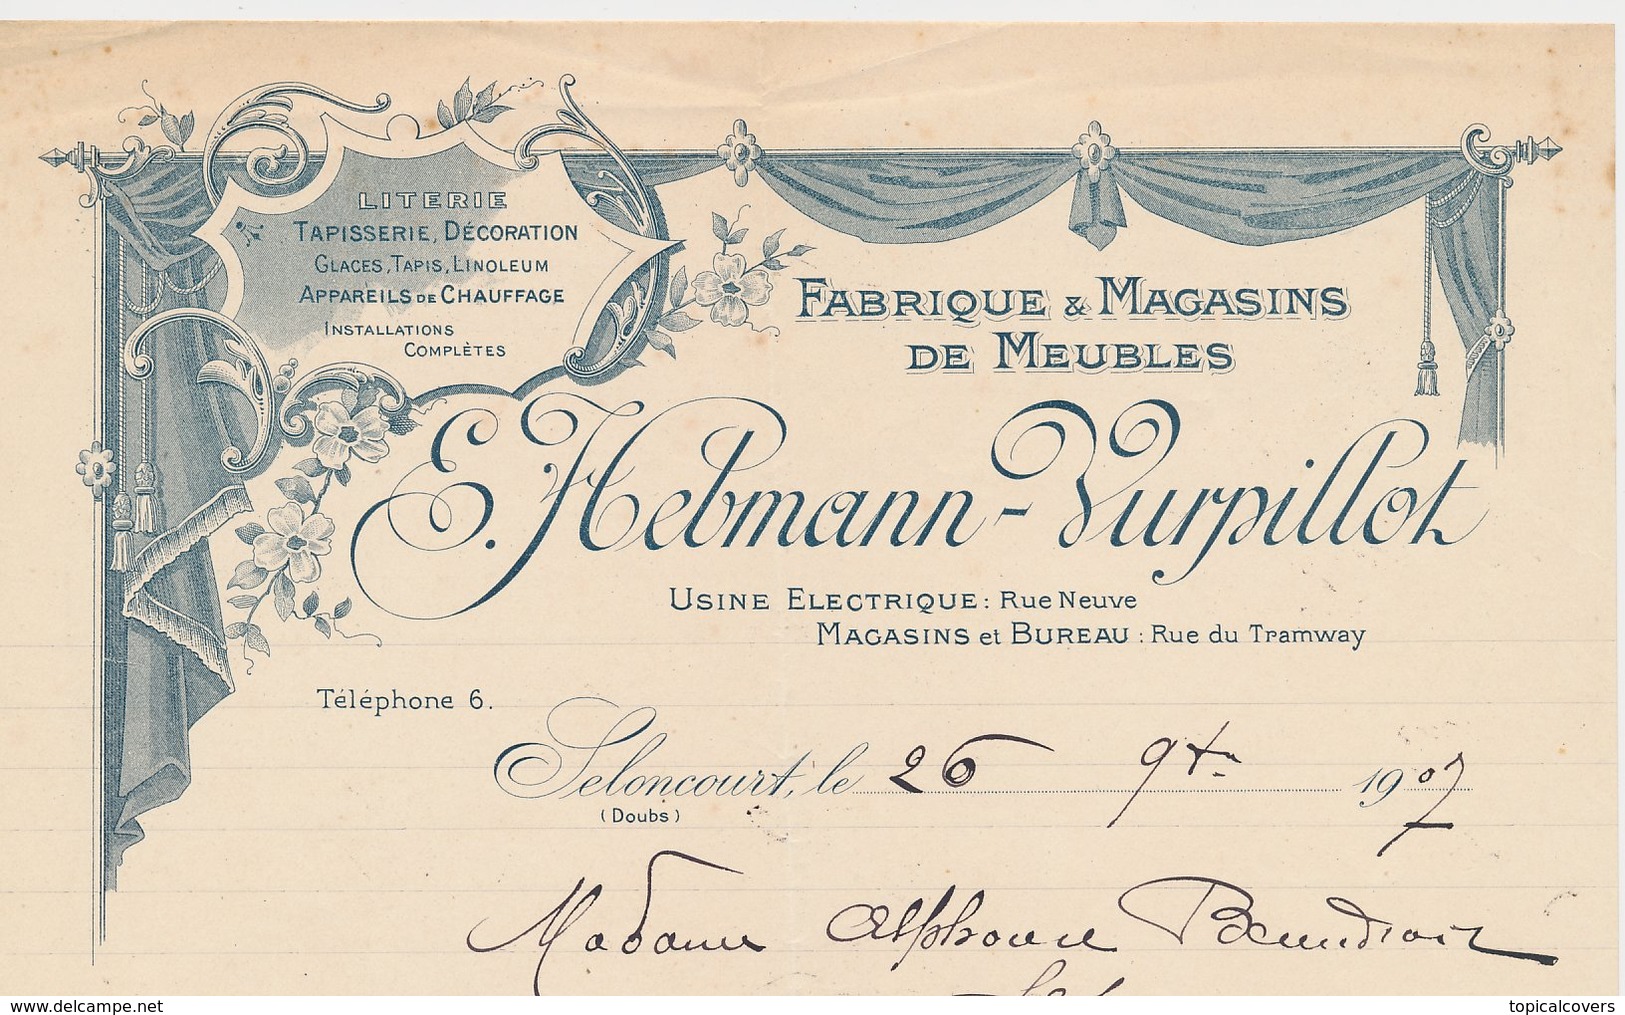 LITERIE
TAPISSERIE, DÉCORATION
GLACES, TAPIS, LINOLEUM
APPAREILS DE CHAUFFAGE
INSTALLATIONS
COMPLÈTES
FABRIQUE & MAGASINS
DE MEUBLES
E. Hebmann-Vurpillot
USINE ELECTRIQUE: Rue Neuve
MAGASINS et BUREAU : Rue du Tramway
Téléphone 6.
Seloncourt, le 26 9bre 1907
(Doubs)
Madame Alphonse
delcampe.net
topicalcovers